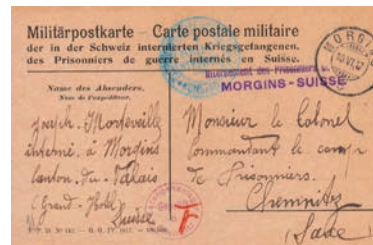 Militärpostkarte – Carte postale militaire
der in der Schweiz internierten Kriegsgefangenen.
des Prisonniers de guerre internés en Suisse.
Internement des Prisonniers
MORGINS - SUISSE
MORGINS
10.VI.17
Name des Absenders.
Nom de l'expéditeur.
Morteveille
interné à Morgins
Canton du Valais
Grand-Hôtel
Suisse
Monsieur le Colonel
Commandant le camp
de Prisonniers.
Chemnitz
(Saxe)